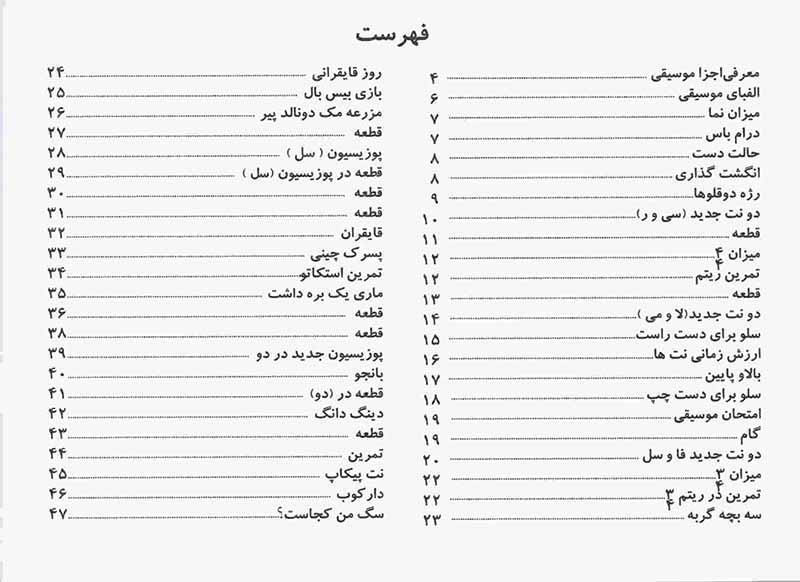 فهرست
معرفی‌اجزا موسیقی ۴
الفبای موسیقی ۶
میزان نما ۷
درام باس ۷
حالت دست ۸
انگشت گذاری ۸
رژه دوقلوها ۹
دو نت جدید (سی و ر) ۱۰
قطعه ۱۱
میزان ۴/۴ ۱۲
تمرین ریتم ۱۲
قطعه ۱۳
دو نت جدید(لا و می ) ۱۴
سلو برای دست راست ۱۵
ارزش زمانی نت ها ۱۶
بالاو پایین ۱۷
سلو برای دست چپ ۱۸
امتحان موسیقی ۱۹
گام ۱۹
دو نت جدید فا و سل ۲۰
میزان ۳/۴ ۲۲
تمرین در ریتم ۳/۴ ۲۲
سه بچه گربه ۲۳
روز قایقرانی ۲۴
بازی بیس بال ۲۵
مزرعه مک دونالد پیر ۲۶
قطعه ۲۷
پوزیسیون ( سل ) ۲۸
قطعه در پوزیسیون (سل ) ۲۹
قطعه ۳۰
قطعه ۳۱
قایقران ۳۲
پسرک چینی ۳۳
تمرین استکاتو ۳۴
ماری یک بره داشت ۳۵
قطعه ۳۶
قطعه ۳۸
پوزیسیون جدید در دو ۳۹
بانجو ۴۰
قطعه در (دو) ۴۱
دینگ دانگ ۴۲
قطعه ۴۳
تمرین ۴۴
نت پیکاپ ۴۵
دارکوب ۴۶
سگ من کجاست؟ ۴۷